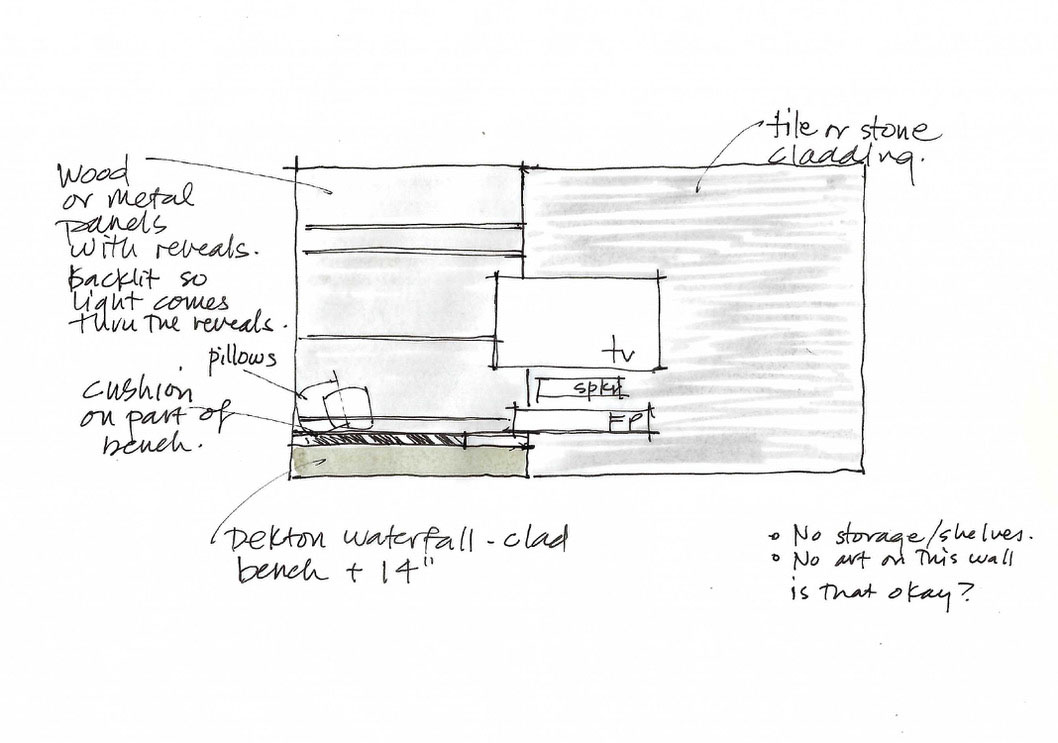 tile or stone
cladding.
Wood
or metal
panels
with reveals.
Backlit so
light comes
thru the reveals.
pillows
cushion
on part of
bench.
tv
spkr
FP
Dekton waterfall-clad
bench + 14"
• No storage/shelves.
• No art on this wall
is that okay?